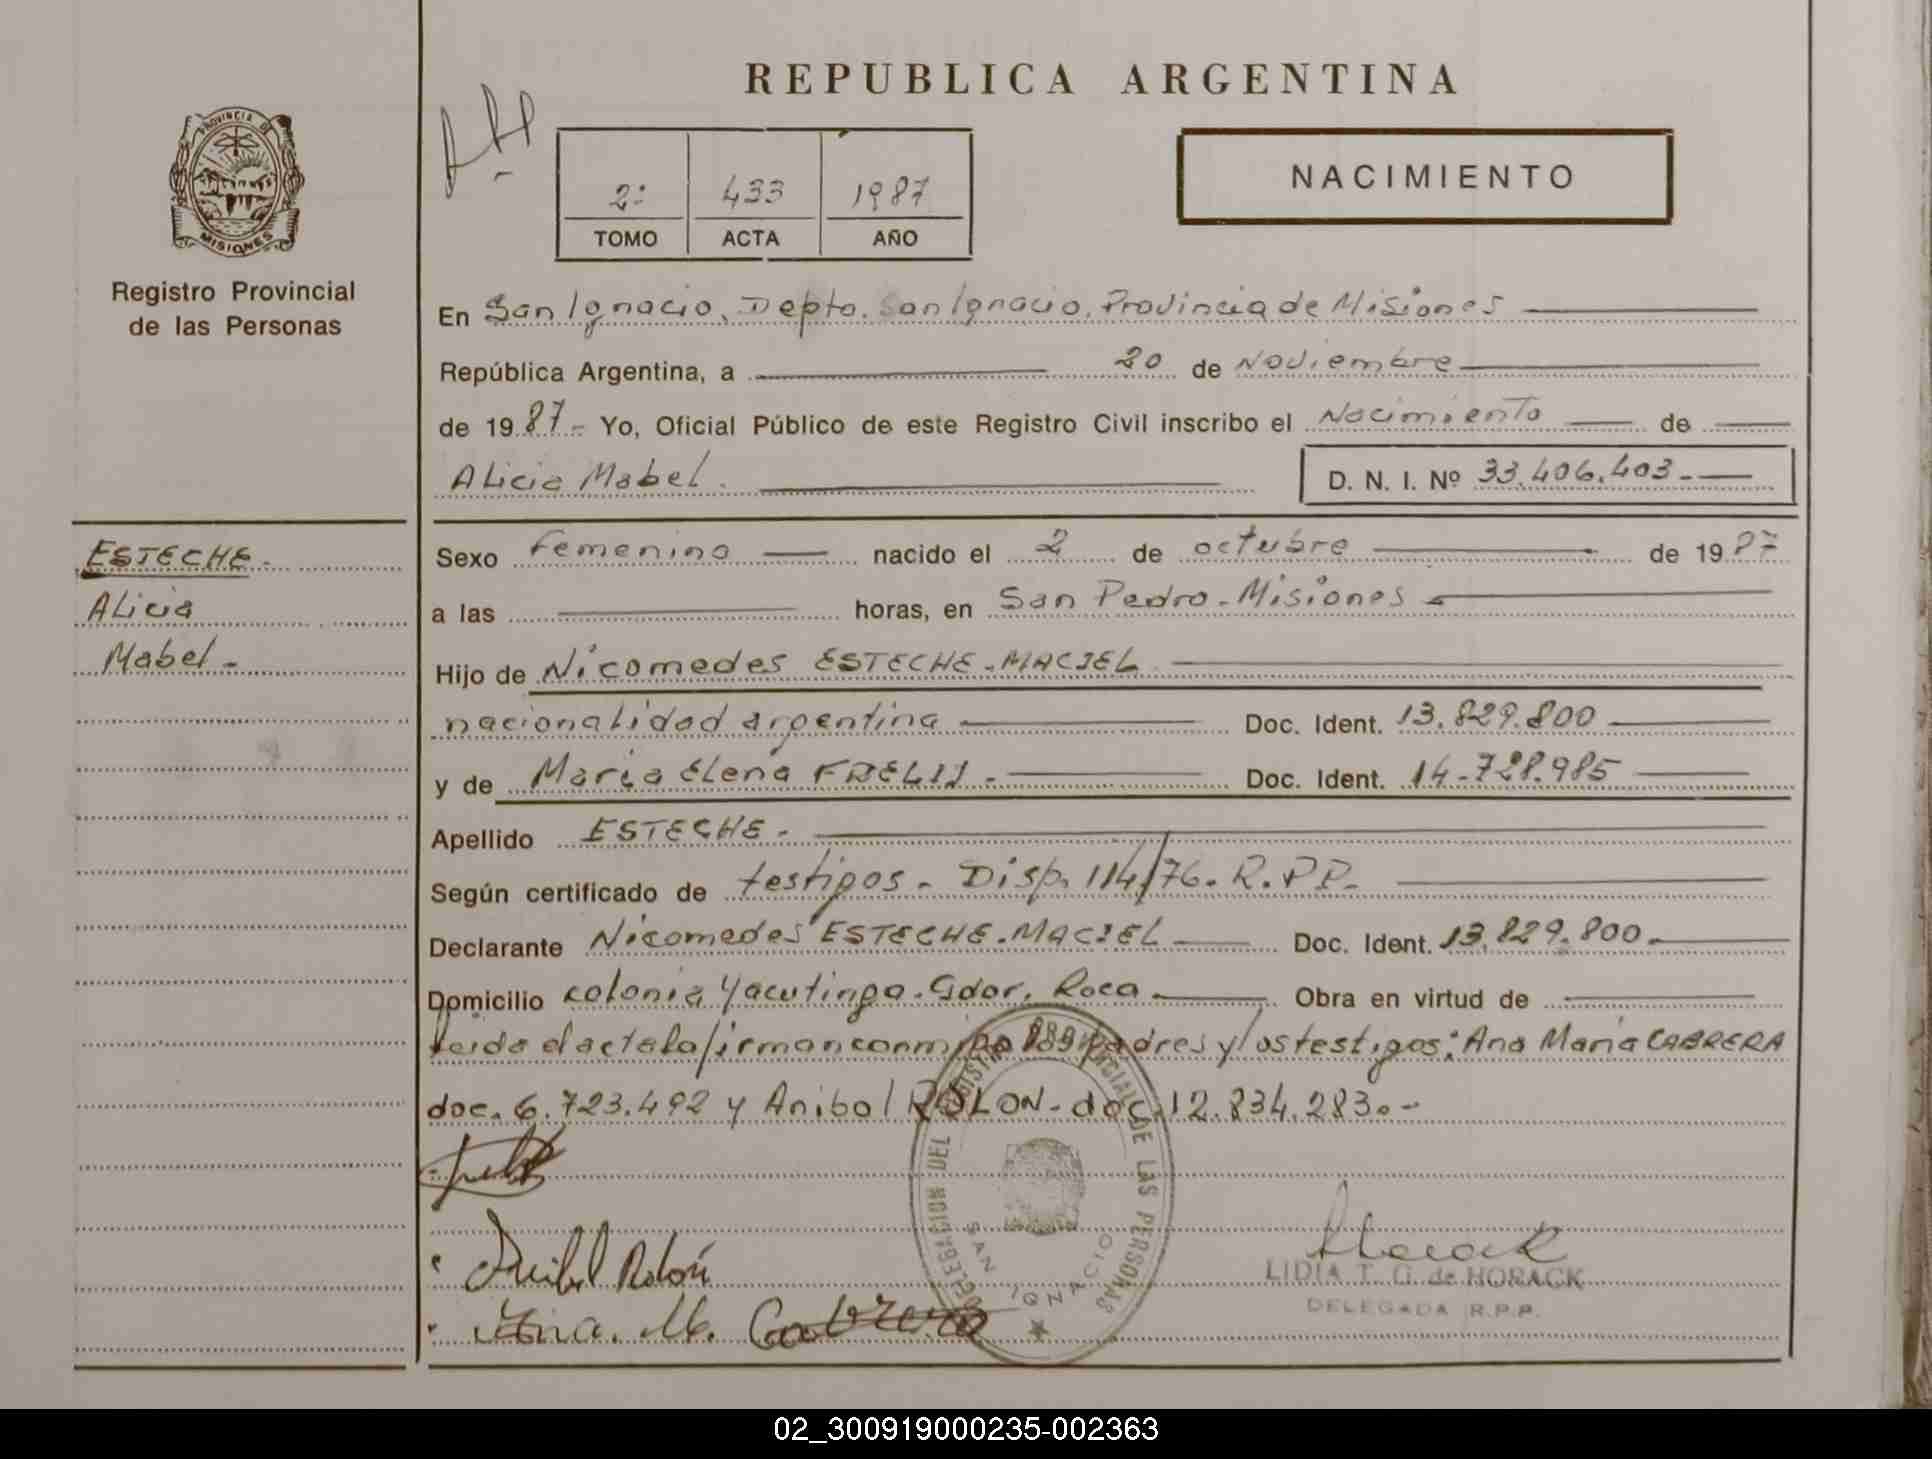 REPUBLICA ARGENTINA
PROVINCIA DE
MISIONES
Registro Provincial
de las Personas
2º 433 1987
TOMO ACTA AÑO
NACIMIENTO
En San Ignacio, Depto. San Ignacio, Provincia de Misiones
República Argentina, a 20 de Noviembre
de 1987.- Yo, Oficial Público de este Registro Civil inscribo el Nacimiento de
Alicia Mabel. D. N. I. Nº 33.406.403.-
ESTECHE.
Alicia
Mabel.-
Sexo Femenino nacido el 2 de octubre de 1987
a las horas, en San Pedro - Misiones
Hijo de Nicomedes ESTECHE - MACIEL
nacionalidad argentina Doc. Ident. 13.829.800
y de María Elena Doc. Ident. 14.728.985
Apellido ESTECHE.
Según certificado de testigos - Disp. 114/76. R.P.P.
Declarante Nicomedes ESTECHE - MACIEL Doc. Ident. 13.829.800.
Domicilio colonia Yacutinga. Gdor. Roca Obra en virtud de
leida el acta la firman conmigo los padres y los testigos: Ana María CABRERA
doc. 6.723.492 y Anibal ROLON - doc. 12.834.283.-
DELEGACION DEL REGISTRO PROVINCIAL DE LAS PERSONAS
SAN IGNACIO
Anibal Rolón
Ana M. Cabrera
LIDIA T. G. de HORACK
DELEGADA R.P.P.
02_300919000235-002363